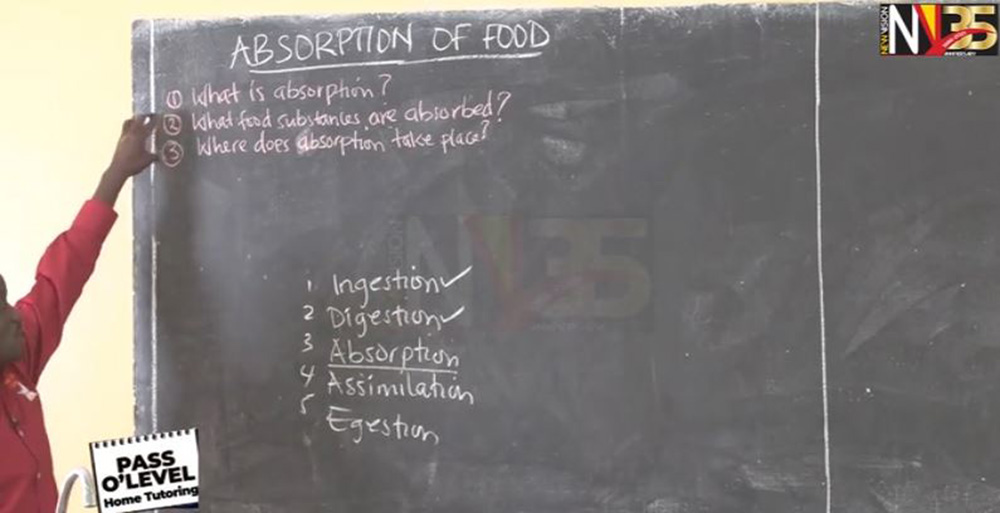 ABSORPTION OF FOOD
① What is absorption?
② What food substances are absorbed?
③ Where does absorption take place?
1 Ingestion✓
2 Digestion✓
3 Absorption
4 Assimilation
5 Egestion
NEW VISION
35
PASS
O'LEVEL
Home Tutoring